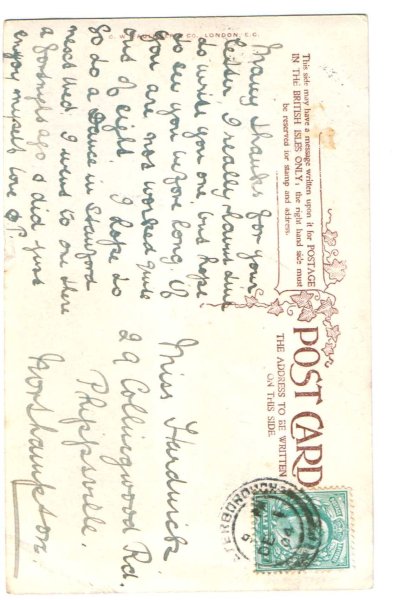 This side may have a message written upon it for POSTAGE
IN THE BRITISH ISLES ONLY; the right hand side must
be reserved for stamp and address.
POST CARD
THE ADDRESS TO BE WRITTEN
ON THIS SIDE.
Many thanks for your
letter I really havnt time
to write you one but hope
to see you before long. If
you are not worked quite
out of sight. I hope to
go to a Dance in Stamford
next Wed. I went to one there
a fortnight ago & did just
enjoy myself love
Miss Hardwick
29 Collingwood Rd.
Phippsville.
Northampton.
CO., LONDON, E.C.
TERBOROUGH